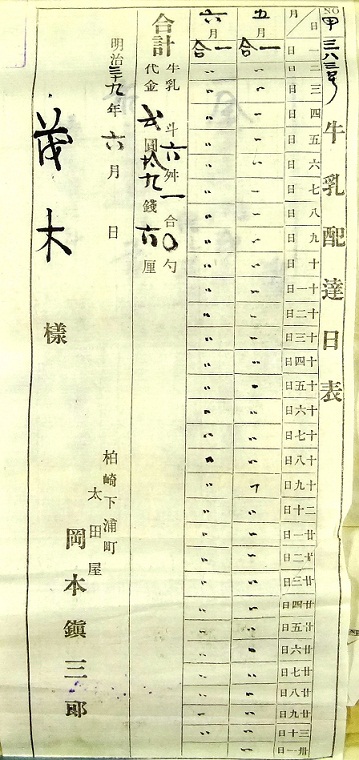 NO 甲三八三号
牛乳配達日表
月/日 一日 二日 三日 四日 五日 六日 七日 八日 九日 十日 十一日 十二日 十三日 十四日 十五日 十六日 十七日 十八日 十九日 二十日 廿一日 廿二日 廿三日 廿四日 廿五日 廿六日 廿七日 廿八日 廿九日 三十日 卅一日
五月 一合 〃 〃 〃 〃 〃 〃 〃 〃 〃 〃 〃 〃 〃 〃 〃 〃 〃 〃 〃 〃 〃 〃 〃 〃 〃 〃 〃 〃 〃
六月 一合 〃 〃 〃 〃 〃 〃 〃 〃 〃 〃 〃 〃 〃 〃 〃 〃 〃 〃 〃 〃 〃 〃 〃 〃 〃 〃 〃 〃 〃
合計
牛乳 斗六舛一合〇勺
代金 弐圓拾九銭六厘
明治三十九年六月 日
茂木様
柏崎下浦町
太田屋
岡本鎭三郎